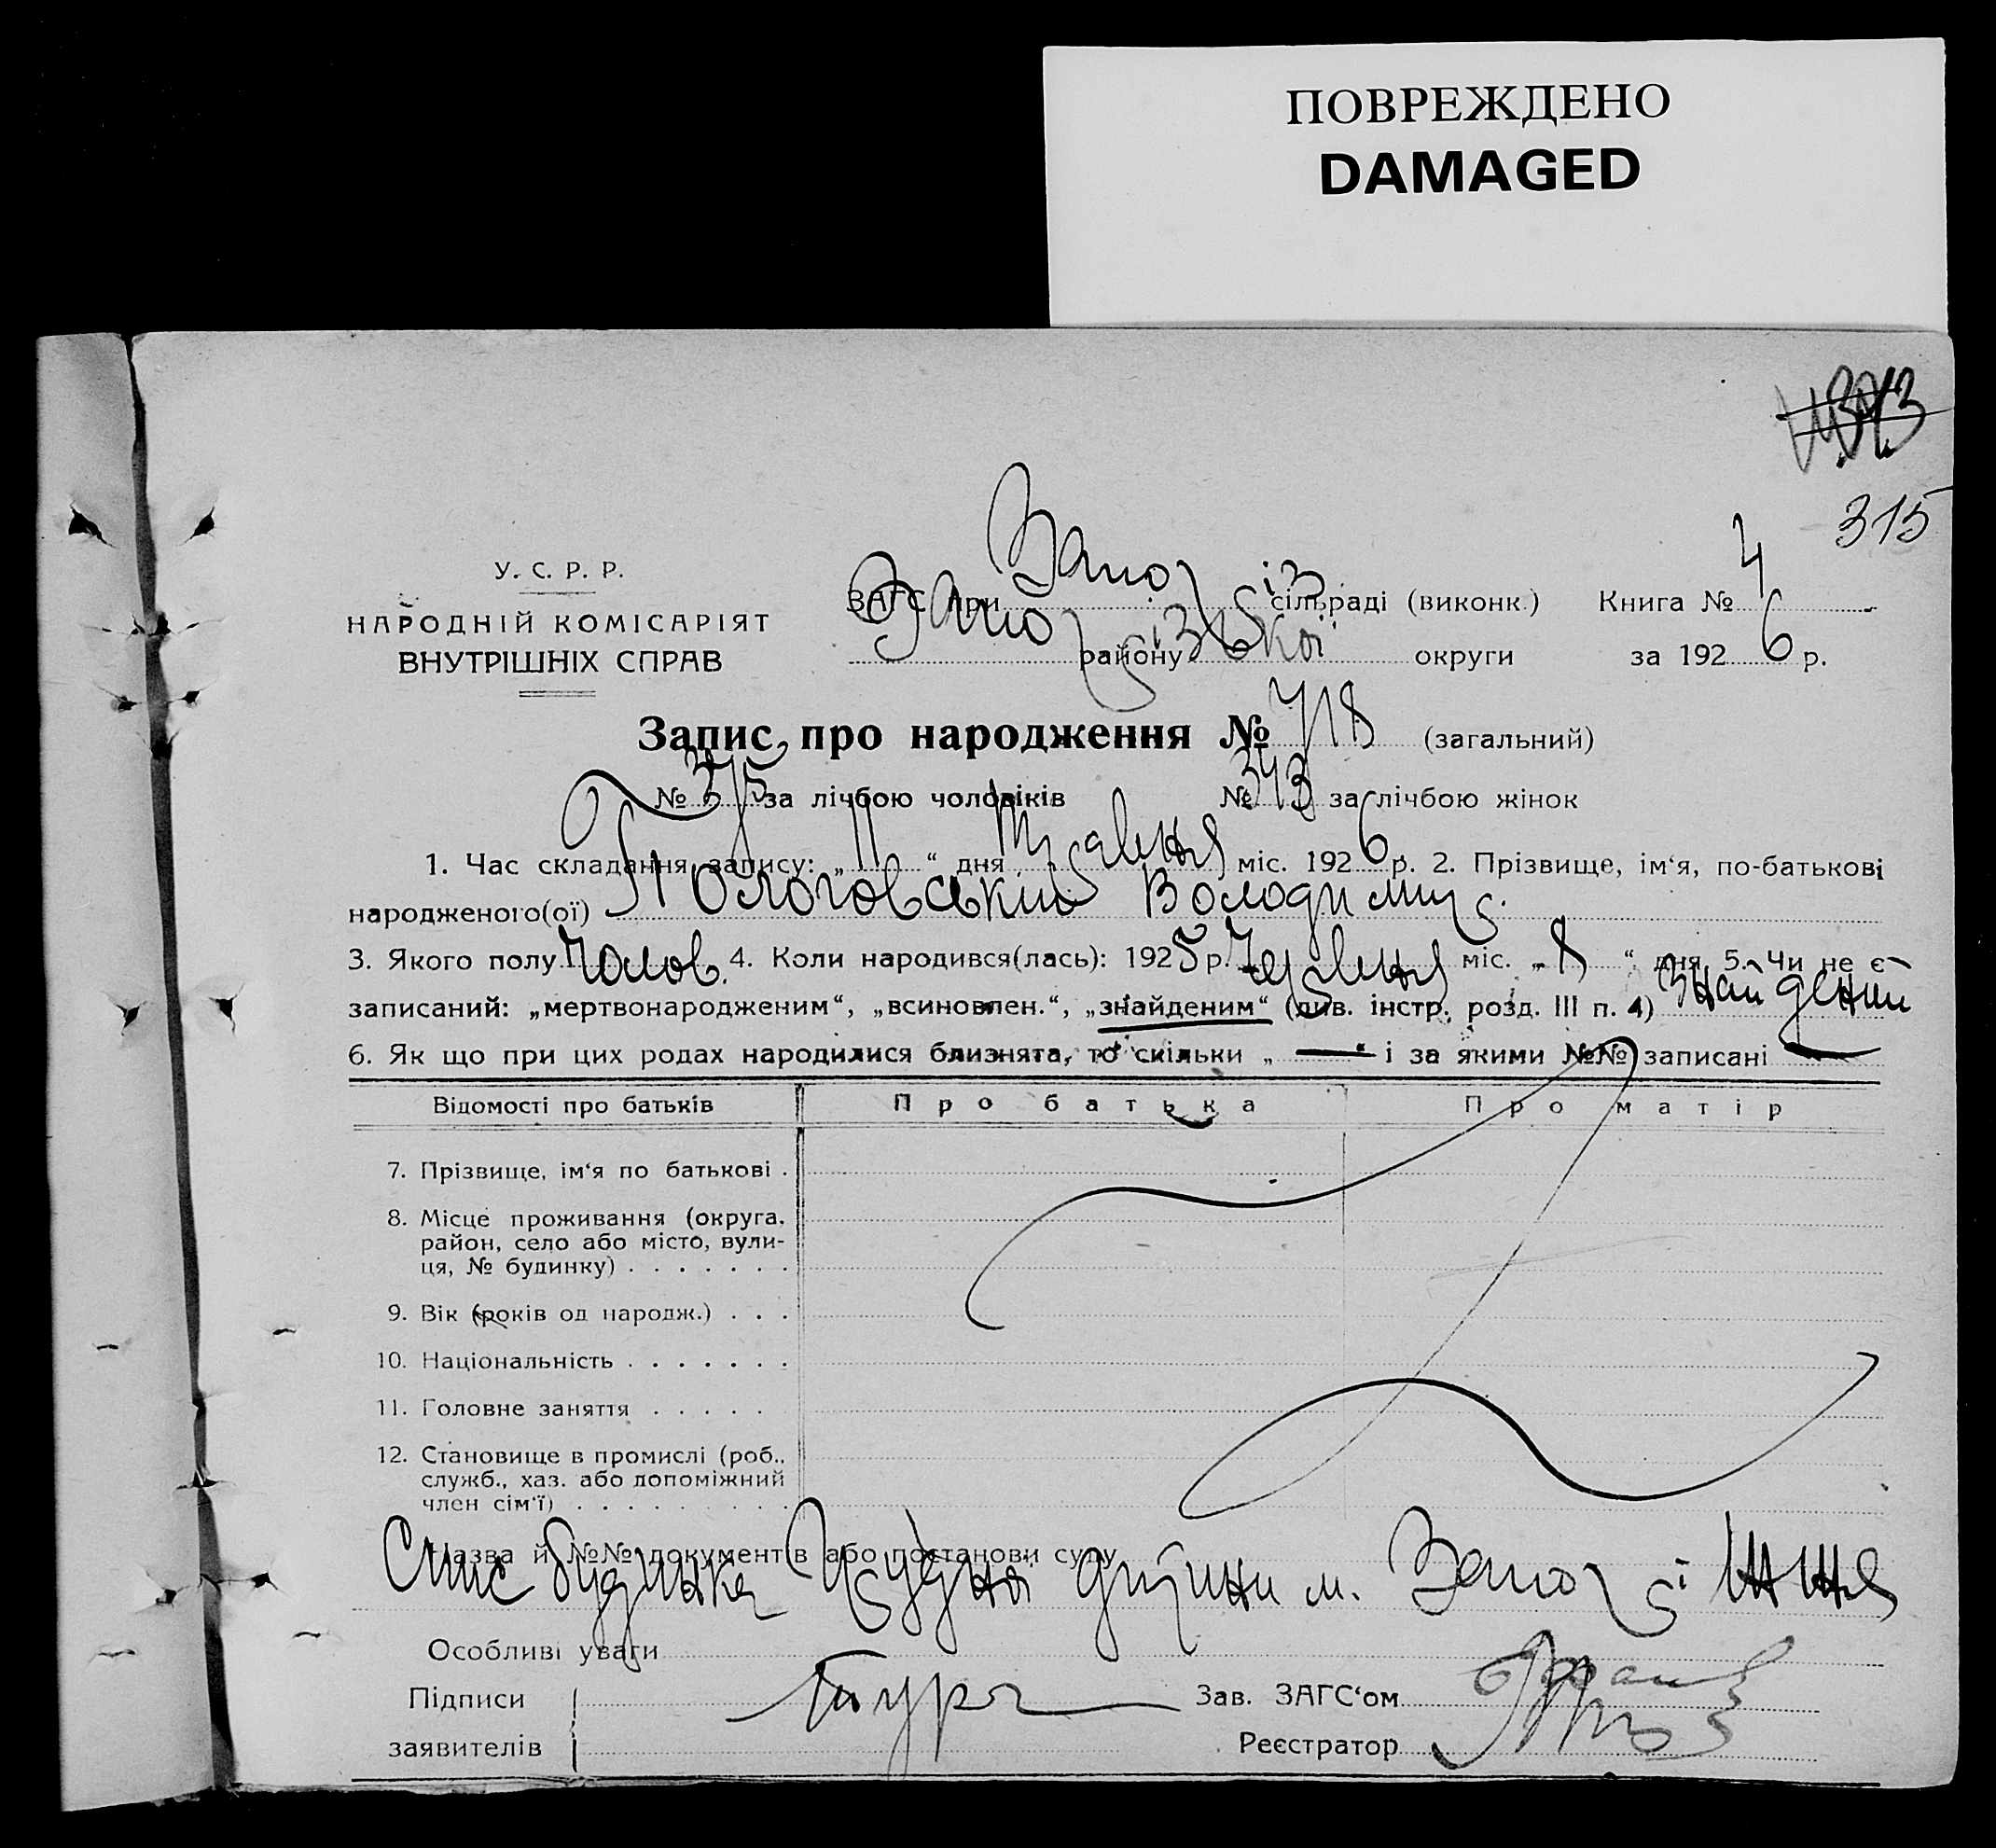 ПОВРЕЖДЕНО
DAMAGED
315
У. С. Р. Р.
НАРОДНІЙ КОМІСАРІЯТ
ВНУТРІШНІХ СПРАВ
ЗАГС при Запоріз сільраді (виконк.) Книга № 4
Запорізької району округи за 1926 р.
Запис про народження № 718 (загальний)
№ 375 за лічбою чоловіків № 343 за лічбою жінок
1. Час складання запису: „11“ дня Травня міс. 1926 р. 2. Прізвище, ім‘я, по-батькові
народженого(ої) Пологовський Володимир.
3. Якого полу Чолов. 4. Коли народився(лась): 1925 р. Червня міс. „8“ дня 5. Чи не є
записаний: „мертвонародженим“, „всиновлен.“, „знайденим“ (див. інстр. розд. III п. 4) Знайдений
6. Як що при цих родах народилися близнята, то скільки „ — “ і за якими №№ записані —
Відомості про батьків Про батька Про матір
7. Прізвище, ім‘я по батькові .
8. Місце проживання (округа,
район, село або місто, вули-
ця, № будинку) . . . . . . .
9. Вік (років од народж.) . . .
10. Національність . . . . . . .
11. Головне заняття . . . . .
12. Становище в промислі (роб.,
служб., хаз. або допоміжний
член сім‘ї) . . . . . . . . .
Назва й №№ документів або постанови суду
Спис будинка грудної дитини м. Запоріжжя
Особливі уваги
Підписи Зав. ЗАГС‘ом
заявителів Реєстратор